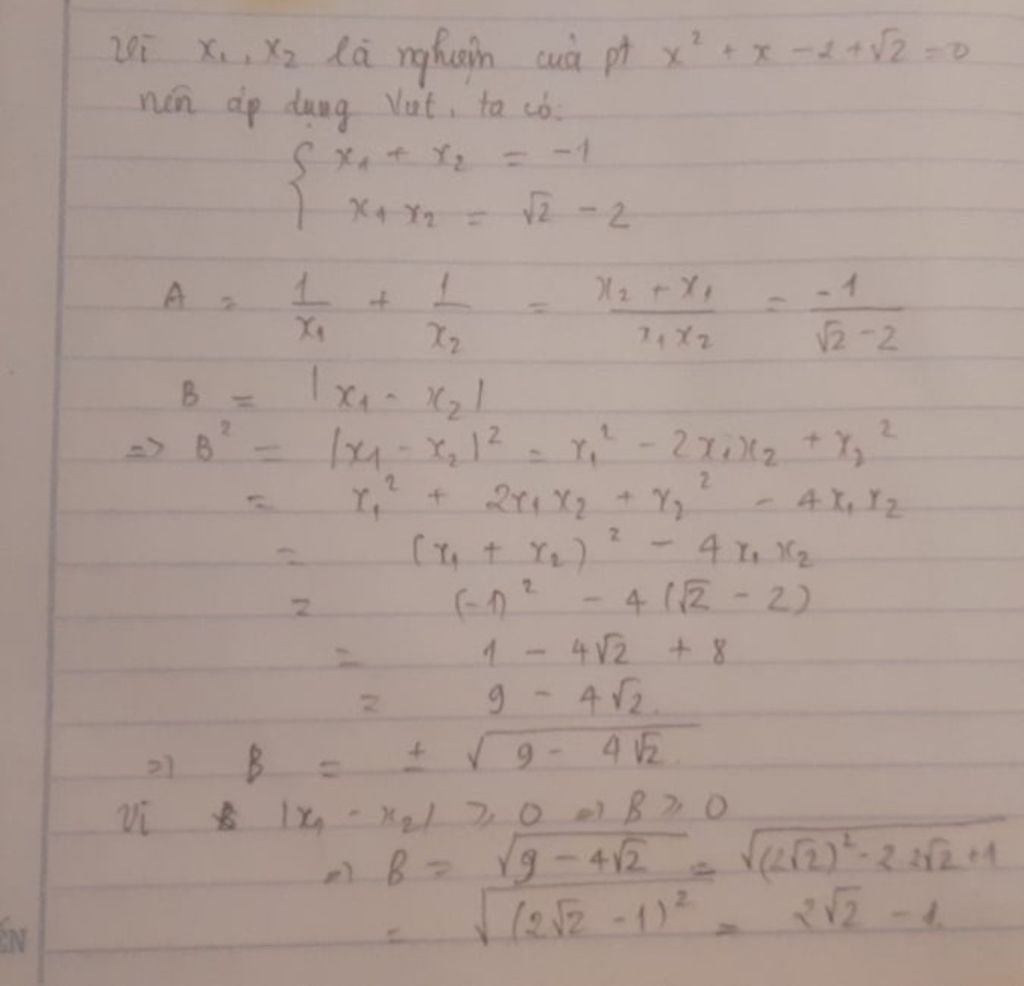 Vì x₁, x₂ là nghiệm của pt x² + x - 2 + √2 = 0
nên áp dụng Viet, ta có:
{ x₁ + x₂ = -1
x₁x₂ = √2 - 2
A = 1/x₁ + 1/x₂ = (x₂ + x₁)/(x₁x₂) = -1/(√2 - 2)
B = |x₁ - x₂|
=> B² = |x₁ - x₂|² = x₁² - 2x₁x₂ + x₂²
= x₁² + 2x₁x₂ + x₂² - 4x₁x₂
= (x₁ + x₂)² - 4x₁x₂
= (-1)² - 4(√2 - 2)
= 1 - 4√2 + 8
= 9 - 4√2.
=> B = ± √(9 - 4√2)
Vì |x₁ - x₂| ≥ 0 => B ≥ 0
=> B = √(9 - 4√2) = √((2√2)² - 2.2√2 + 1)
= √((2√2 - 1)²) = 2√2 - 1.
ẾN